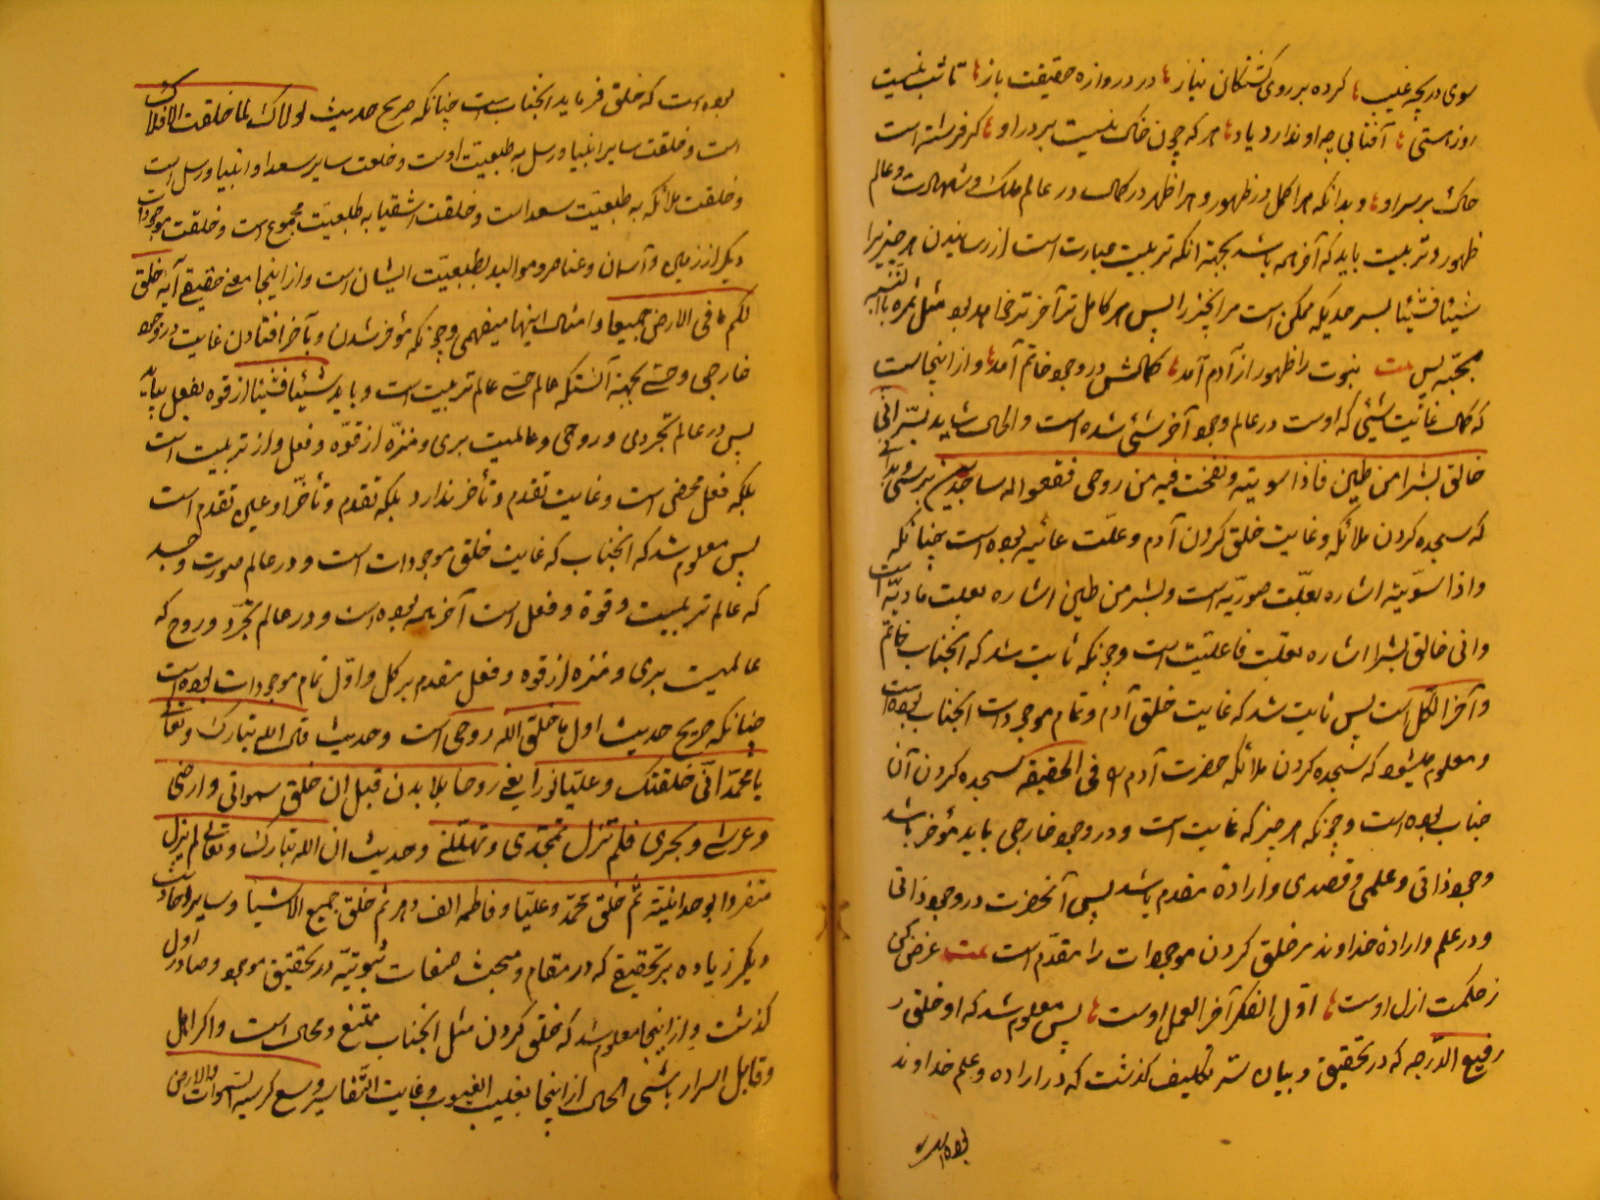 سوی دریچه غیب ها کرده بر روی کشتگان نیاز ها در دروازه حقیقت باز ها تا شب نیست
روز هستی ها آفتابی چه او ندارد یاد ها هر که چون خاک نیست بر در او ها گر فرشته است
خاک بر سر او ها و بدانکه هر اکمل در ظهور و هر اظهر در کمال در عالم ملک و شهادت و عالم
ظهور و تربیت باید که آخر همه باشد بجهة انکه تربیت عبارت است از رسانیدن هر چیز را
شیئا فشیئا بسر حدیکه ممکن است مر انچیز را پس هر کامل تر آخر تر خواهد بود مثل ثمره بالنسبه
بحبّه پس بیت نبوت را ظهور از آدم آمد ها کمالش در وجود خاتم آمد ها و از اینجاست
که کمال غائیت شیئی که اوست در عالم وجود آخر شیئی شده است و الحال شاید بسرّ انّی
خالق بشرا من طین فاذا سویته و نفخت فیه من روحی فقعوا له ساجدین برسی و بدانی
که سجده کردن ملائکه و غایت خلق کردن آدم و علّت غائیه بوده است چنانکه
و اذا سوّیته اشاره بعلّت صوریّه است و بشر من طین اشاره بعلت مادیّه است
و انی خالق بشرا اشاره بعلت فاعلیّت است و چونکه ثابت شد که انجناب خاتم
و آخر الکل است پس ثابت شد که غایت خلق آدم و تمام موجودات انجناب بوده است
و معلوم میشود که سجده کردن ملائکه حضرت آدم را فی الحقیقه سجده کردن آن
جناب بوده است و چونکه هر چیز که غایت است و در وجود خارجی باید مؤخر باشد
وجود ذاتی و علمی و قصدی و ارادة مقدم باشد پس آنحضرت در وجود ذاتی
و در علم و ارادهٔ خداوند مر خلق کردن موجودات را مقدّم است بیت غرض کن
ز حکمت ازل اوست ها اوّل الفکر آخر العمل اوست ها پس معلوم شد که او خلق
رفیع الدّرجه که در تحقیق و بیان سرّ تکلیف گذشت که در اراده و علم خداوند
بوده است
بوده است که خلق فرماید انجناب است چنانکه صریح حدیث لولاک لما خلقت الافلاک
است و خلقت سایر انبیا و رسل به طبعیّت اوست و خلقت سایر سعدا و انبیا و رسل است
و خلقت ملائکه به طبعیّت سعد است و خلقت اشقیا به طبعیّت مجموع است و خلقت موجودات
دیگر از زمین و آسمان و عناصر و موالید بطبعیّت ایشان است و از اینجا معنی حقیقی آیه خلق
لکم ما فی الارض جمیعا و امثال اینها میفهمی و چونکه مؤخر شدن و بآخر افتادن غایت در وجود
خارجی و حسّی بجهة آنستکه عالم حسّی عالم تربیت است و باید شیئا فشیئا از قوه بفعل بیاید
پس در عالم تجردی و روحی و عالمیت بری و منزّه از قوّه و فعل و از تربیت است
بلکه فعل محض است و غایت تقدم و تأخر ندارد بلکه تقدم و تأخّر او عین تقدم است
پس معلوم شد که انجناب که غایت خلق موجودات است و در عالم صورت و جسد
که عالم تربیت و قوة و فعل است آخر همه بوده است و در عالم تجرّد و روح که
عالمیت بری و منزه از قوه و فعل مقدم بر کل و اوّل تمام موجودات بوده است
چنانکه صریح حدیث اول ما خلق الله روحی است و حدیث قال الله تبارک و تعالی
یا محمّد انّی خلقتک و علیّا نورا یعنی روحا بلا بدن قبل ان خلق سمواتی و ارضی
و عرشی و بحری فلم تزل تمجّدنی و تهلّلنی و حدیث ان الله تبارک و تعالی لم یزل
متفردا بوحدانیّته ثم خلق محمّد و علیّا و فاطمه الف دهر ثم خلق جمیع الاشیا و سایر حادثات
دیگر زیاده بر تحقیقی که در مقام و مبحث صفات ثبوتیّه در تحقیق موجود و صادر اول
گذشت و از اینجا معلوم شد که خلق کردن مثل انجناب ممتنع و محال است و اگر اهل
و قابل اسرار باشی الحال از اینجا بغلیب الغیوب و غایت التّفاسیر وسع کرسیه السّموات و الارض